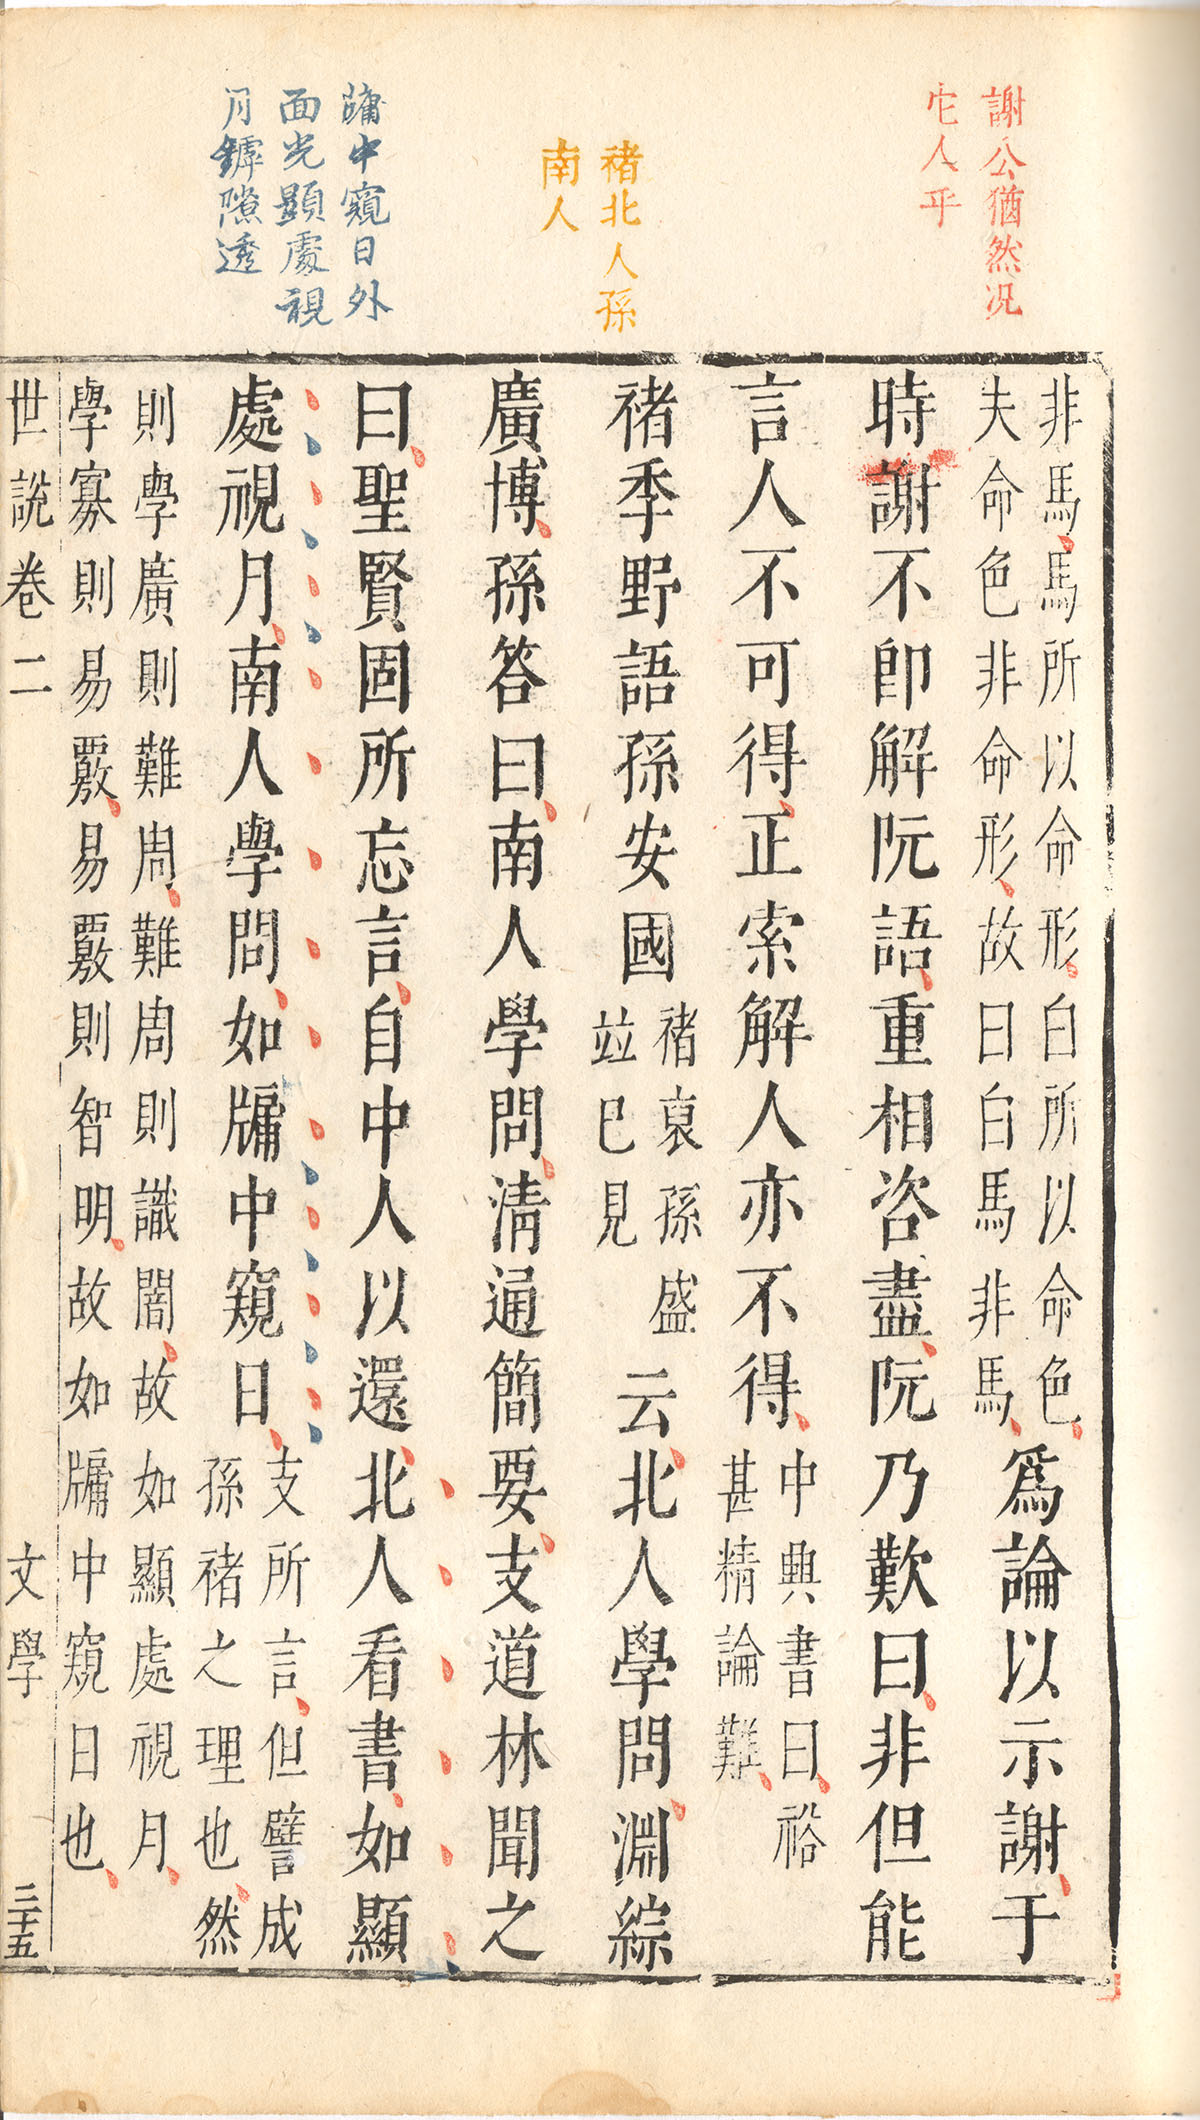 謝公猶然况
它人乎
褚北人孫
南人
牖中窺日外
面光顯處視
月罅隙透
非馬馬所以命形白所以命色
夫命色非命形故曰白馬非馬
爲論以示謝于
時謝不即解阮語重相咨盡阮乃歎曰非但能
言人不可得正索解人亦不得
中興書曰裕
甚精論難
褚季野語孫安國
褚裒孫盛
竝已見
云北人學問淵綜
廣博孫答曰南人學問淸通簡要支道林聞之
曰聖賢固所忘言自中人以還北人看書如顯
處視月南人學問如牖中窺日
支所言但譬成
孫褚之理也然
則學廣則難周難周則識闇故如顯處視月
學寡則易覈易覈則智明故如牖中窺日也
世說卷二
文學
二十五